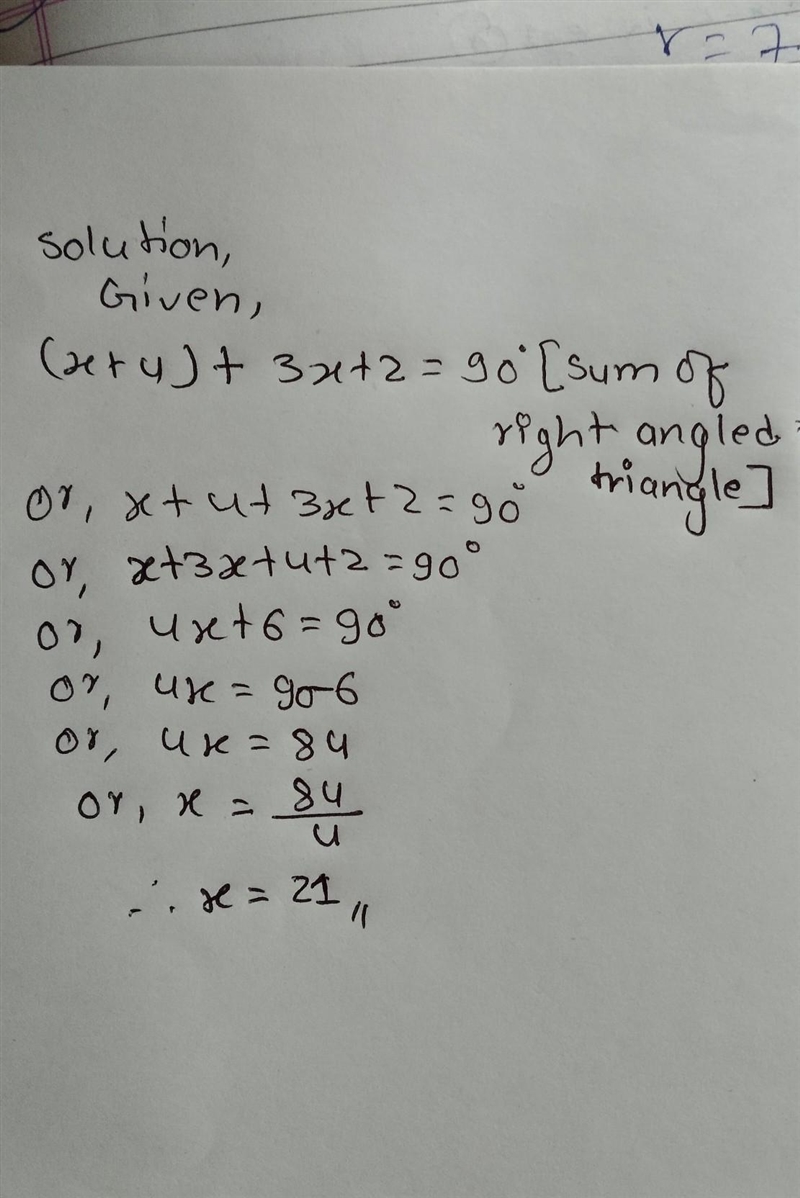 r = 7
solution,
Given,
(x+4)+ 3x+2 = 90° [sum of
right angled
triangle]
or, x+4+3x+2=90°
or, x+3x+4+2=90°
or, 4x+6=90°
or, 4x = 90-6
or, 4x = 84
or, x = 84/4
∴ x = 21 //